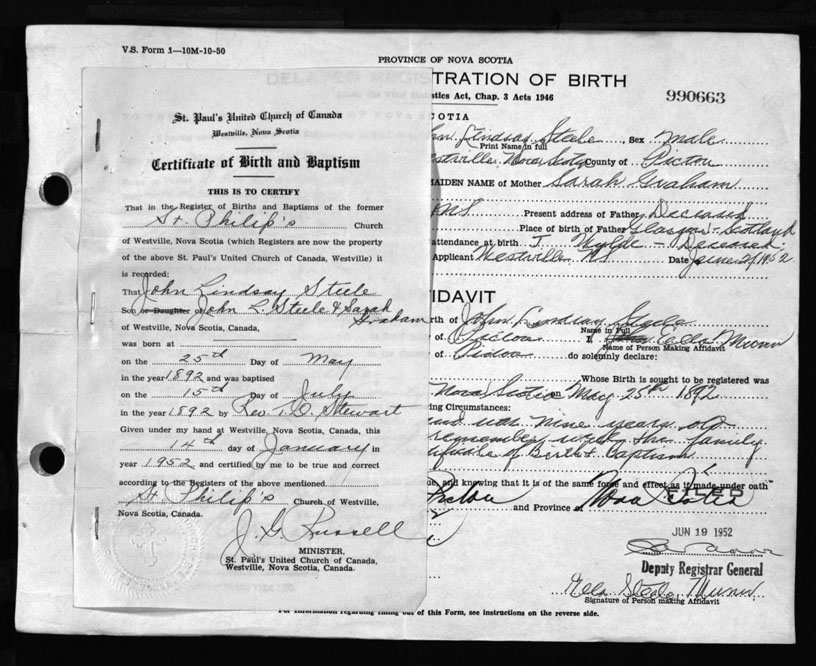 V.S. Form 1—10M-10-50
St. Paul's United Church of Canada
Westville, Nova Scotia
Certificate of Birth and Baptism
THIS IS TO CERTIFY
That in the Register of Births and Baptisms of the former
St. Philip's Church
of Westville, Nova Scotia (which Registers are now the property
of the above St. Paul's United Church of Canada, Westville) it
is recorded:
That John Lindsay Steele
Son or Daughter of John L. Steele & Sarah
Graham
of Westville, Nova Scotia, Canada,
was born at
on the 25th Day of May
in the year 1892 and was baptised
on the 15th Day of July
in the year 1892 by Rev. T. C. Stewart
Given under my hand at Westville, Nova Scotia, Canada, this
14th day of January in
year 1952 and certified by me to be true and correct
according to the Registers of the above mentioned
St. Philip's Church of Westville,
Nova Scotia, Canada.
J. G. Russell
MINISTER,
St. Paul's United Church of Canada,
Westville, Nova Scotia, Canada.
PROVINCE OF NOVA SCOTIA
DELAYED REGISTRATION OF BIRTH
stics Act, Chap. 3 Acts 1946
990663
COTIA
hn Lindsay Steele, Sex male
Print Name in full
estville Nova Scotia County of Pictou
MAIDEN NAME of Mother Sarah Graham
N.S. Present address of Father Deceased
Place of birth of Father Glasgow - Scotland
attendance at birth J. Wylde - Deceased.
Applicant Westville N.S. Date June 2/1952
FIDAVIT
rth of John Lindsay Steele
Name in Full
of Pictou I, Ella Munn
Name of Person Making Affidavit
of Pictou do solemnly declare:
Whose Birth is sought to be registered was
Nova Scotia on May 25th 1892
ing Circumstances:
and was nine years old
remember with the family
tificate of Birth & Baptism
ue, and knowing that it is of the same force and effect as if made under oath
Pictou and Province of Nova Scotia
FILED
JUN 19 1952
Deputy Registrar General
Ella Steele Munn
Signature of Person making Affidavit
For information regarding filling out of this Form, see instructions on the reverse side.